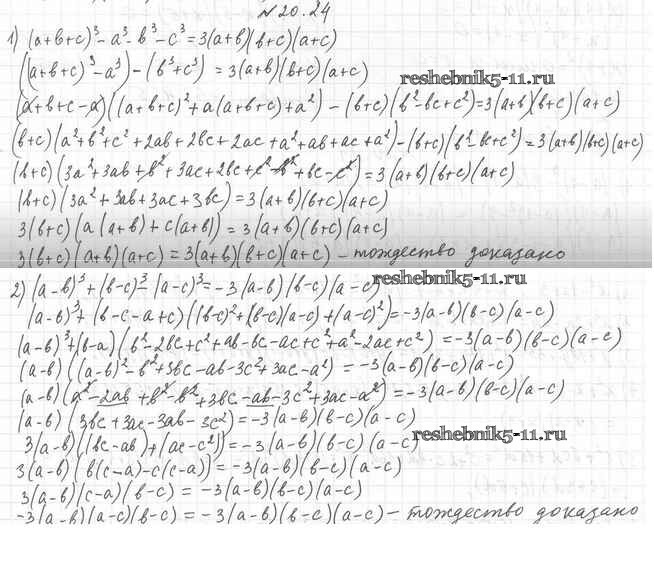 №20.24
1) (a+b+c)³-a³-b³-c³=3(a+b)(b+c)(a+c)
((a+b+c)³-a³)-(b³+c³)=3(a+b)(b+c)(a+c)
reshebnik5-11.ru
(a+b+c-a)((a+b+c)²+a(a+b+c)+a²)-(b+c)(b²-bc+c²)=3(a+b)(b+c)(a+c)
(b+c)(a²+b²+c²+2ab+2bc+2ac+a²+ab+ac+a²)-(b+c)(b²-bc+c²)=3(a+b)(b+c)(a+c)
(b+c)(3a²+3ab+b²+3ac+2bc+c²-b²+bc-c²)=3(a+b)(b+c)(a+c)
(b+c)(3a²+3ab+3ac+3bc)=3(a+b)(b+c)(a+c)
3(b+c)(a(a+b)+c(a+b))=3(a+b)(b+c)(a+c)
3(b+c)(a+b)(a+c)=3(a+b)(b+c)(a+c) - тождество доказано
reshebnik5-11.ru
2) (a-b)³+(b-c)³-(a-c)³=-3(a-b)(b-c)(a-c)
(a-b)³+(b-c-a+c)((b-c)²+(b-c)(a-c)+(a-c)²)=-3(a-b)(b-c)(a-c)
(a-b)³+(b-a)(b²-2bc+c²+ab-bc-ac+c²+a²-2ac+c²)=-3(a-b)(b-c)(a-c)
(a-b)((a-b)²-b²+3bc-ab-3c²+3ac-a²)=-3(a-b)(b-c)(a-c)
(a-b)(a²-2ab+b²-b²+3bc-ab-3c²+3ac-a²)=-3(a-b)(b-c)(a-c)
(a-b)(3bc+3ac-3ab-3c²)=-3(a-b)(b-c)(a-c)
reshebnik5-11.ru
3(a-b)((bc-ab)+(ac-c²))=-3(a-b)(b-c)(a-c)
3(a-b)(b(c-a)-c(c-a))=-3(a-b)(b-c)(a-c)
3(a-b)(c-a)(b-c)=-3(a-b)(b-c)(a-c)
-3(a-b)(a-c)(b-c)=-3(a-b)(b-c)(a-c) - тождество доказано